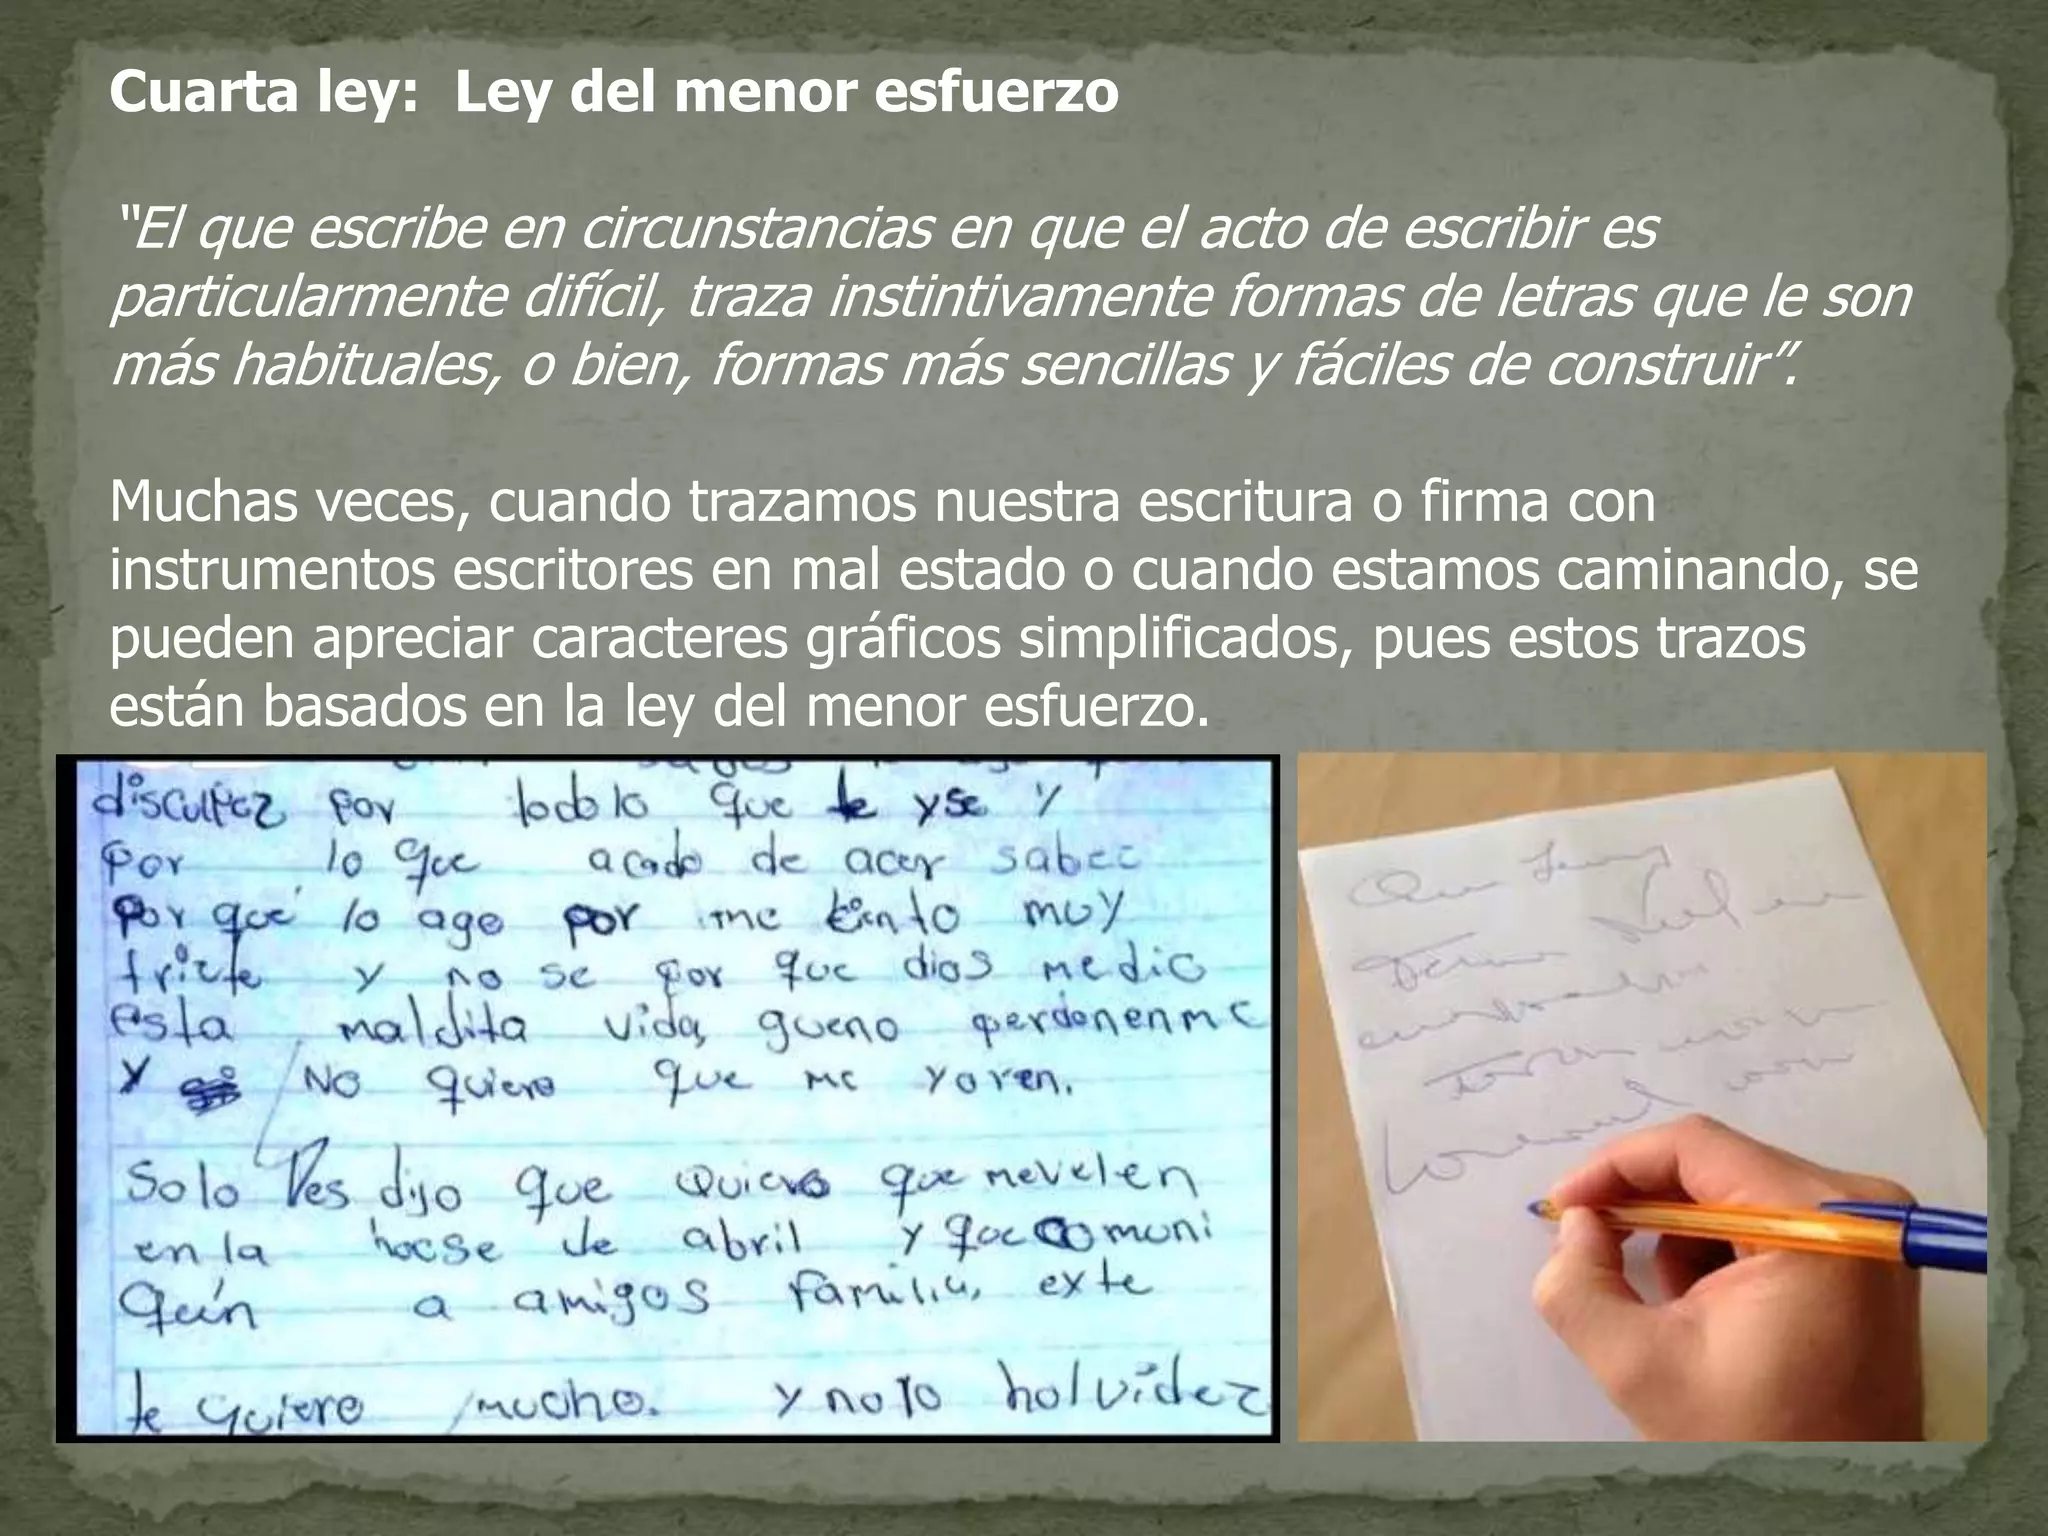 Cuarta ley:  Ley del menor esfuerzo
“El que escribe en circunstancias en que el acto de escribir es
particularmente difícil, traza instintivamente formas de letras que le son
más habituales, o bien, formas más sencillas y fáciles de construir”.
Muchas veces, cuando trazamos nuestra escritura o firma con
instrumentos escritores en mal estado o cuando estamos caminando, se
pueden apreciar caracteres gráficos simplificados, pues estos trazos
están basados en la ley del menor esfuerzo.
disculpez por todo lo que te yse y
por lo que acado de acer sabec
por qué lo ago por me ciento muy
tricte y no se por que dios medio
esta maldita vida, gueno perdonenme
y No quiero que me yoren.
Solo les dijo que quiero que mevelen
en la de abril y que comuni
quín a amigos familia, exte
te quiero mucho. y no lo holvidez